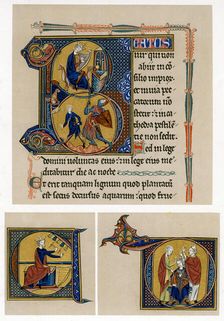 BEATUS
vir qui non
abiit in co
silio impior
et in via pec
catorum no
stetit: et in ca
thedra pestile
tie non sedit.
Sed in lege
domini voluntas eius: et in lege eius me
ditabitur die ac nocte
Et erit tanquam lignum quod plantatu
est secus decursus aquarum: quod fruc